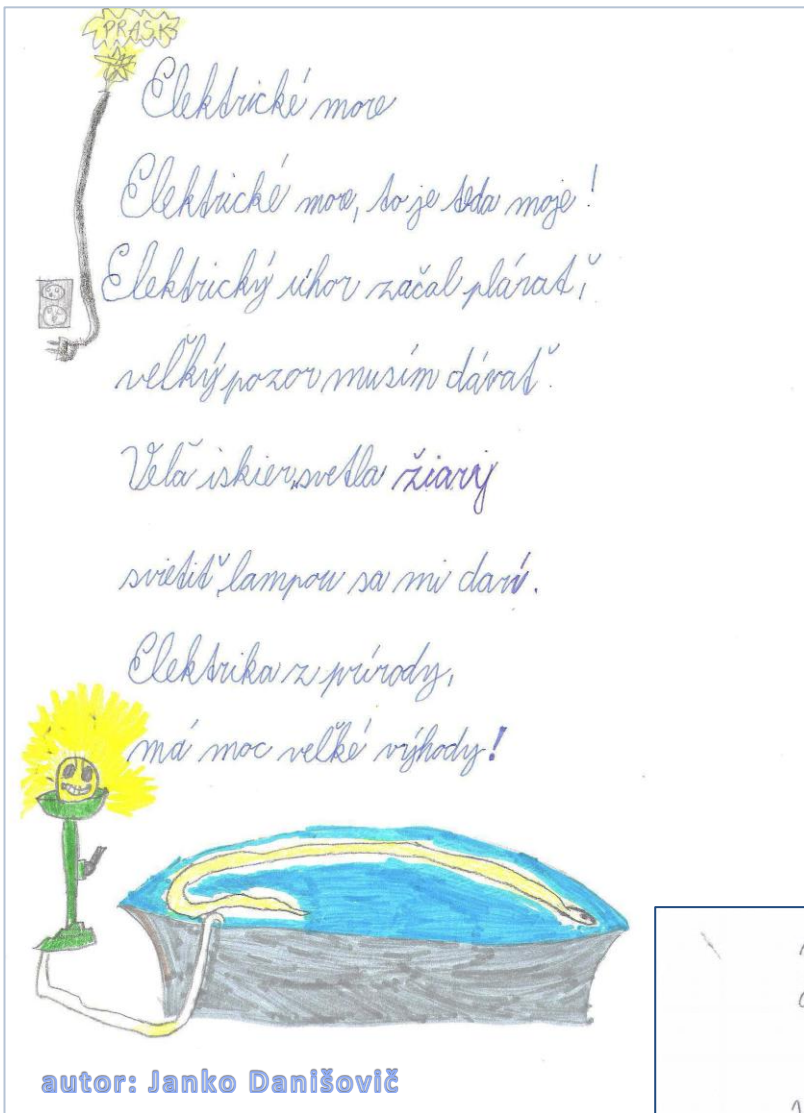 PRASK
Elektrické more
Elektrické more, to je teda moje!
Elektrický úhor začal plávať,
veľký pozor musím dávať.
Veľa iskier, svetla žiari
svietiť lampou sa mi darí.
Elektrika z prírody,
má moc veľké výhody!
autor: Janko Danišovič